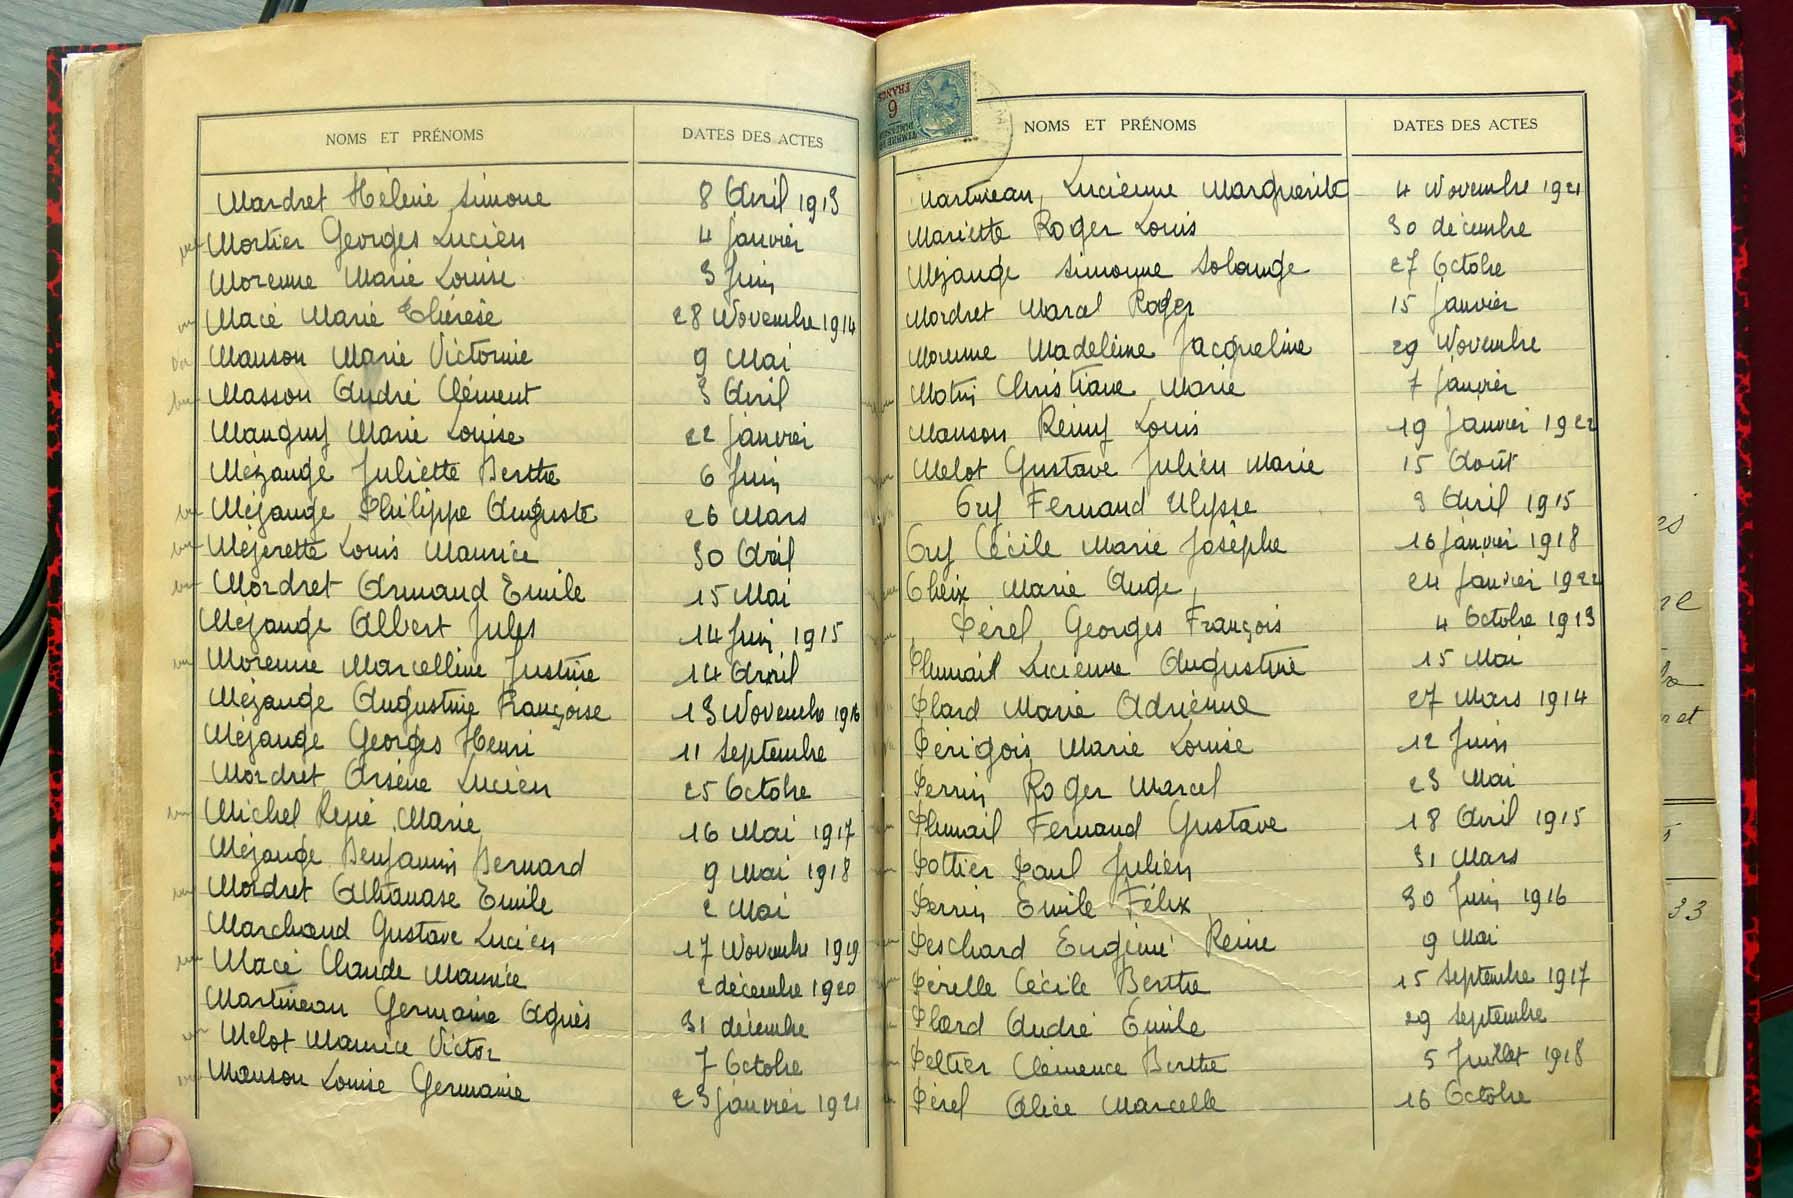 NOMS ET PRÉNOMS DATES DES ACTES
Mardret Hélène Simone 8 Avril 1913
Mortier Georges Lucien 4 janvier
Morenne Marie Louise 3 Juin
Macé Marie Thérèse 28 Novembre 1914
Manson Marie Victorine 9 Mai
Masson André Clément 3 Avril
Mauguy Marie Louise 22 janvier
Mézange Juliette Berthe 6 Juin
Mézange Philippe Auguste 26 Mars
Mézerette Louis Maurice 30 Avril
Mordret Armand Emile 15 Mai
Mézange Albert Jules 14 Juin 1915
Morenne Marcelline Justine 14 Avril
Mézange Augustine Françoise 13 Novembre 1916
Mézange Georges Henri 11 Septembre
Mordret Arsène Lucien 25 Octobre
Michel René Marie 16 Mai 1917
Mézange Benjamin Bernard 9 Mai 1918
Mordret Athanase Emile 2 Mai
Marchand Gustave Lucien 17 Novembre 1919
Macé Claude Maurice 2 décembre 1920
Martineau Germaine Agnès 31 décembre
Melot Maurice Victor 7 Octobre
Manson Louise Germaine 23 janvier 1921
6 FRANCS
NOMS ET PRÉNOMS DATES DES ACTES
Martineau, Lucienne Marguerite 4 Novembre 1921
Mariette Roger Louis 30 décembre
Mézange Simonne Solange 27 Octobre
Mordret Marcel Roger 15 janvier
Morenne Madeleine Jacqueline 29 Novembre
Christiane Marie 7 janvier
Manson Rémy Louis 19 Janvier 1922
Melot Gustave Julien Marie 15 Août
Ory Fernand Ulysse 3 Avril 1915
Ory Cécile Marie Josèphe 16 janvier 1918
Marie Ange 24 Janvier 1922
Pérel Georges François 4 Octobre 1913
Plumail Lucienne Augustine 15 Mai
Plard Marie Adrienne 27 Mars 1914
Périgois Marie Louise 12 Juin
Perrin Roger Marcel 23 Mai
Plumail Fernand Gustave 18 Avril 1915
Pottier Paul Julien 31 Mars
Perrin Emile Félix 30 Juin 1916
Peschard Eugénie Reine 9 Mai
Pérelle Cécile Berthe 15 Septembre 1917
Plard André Emile 29 Septembre
Peltier Clémence Berthe 5 Juillet 1918
Pérel Alice Marcelle 16 Octobre
33